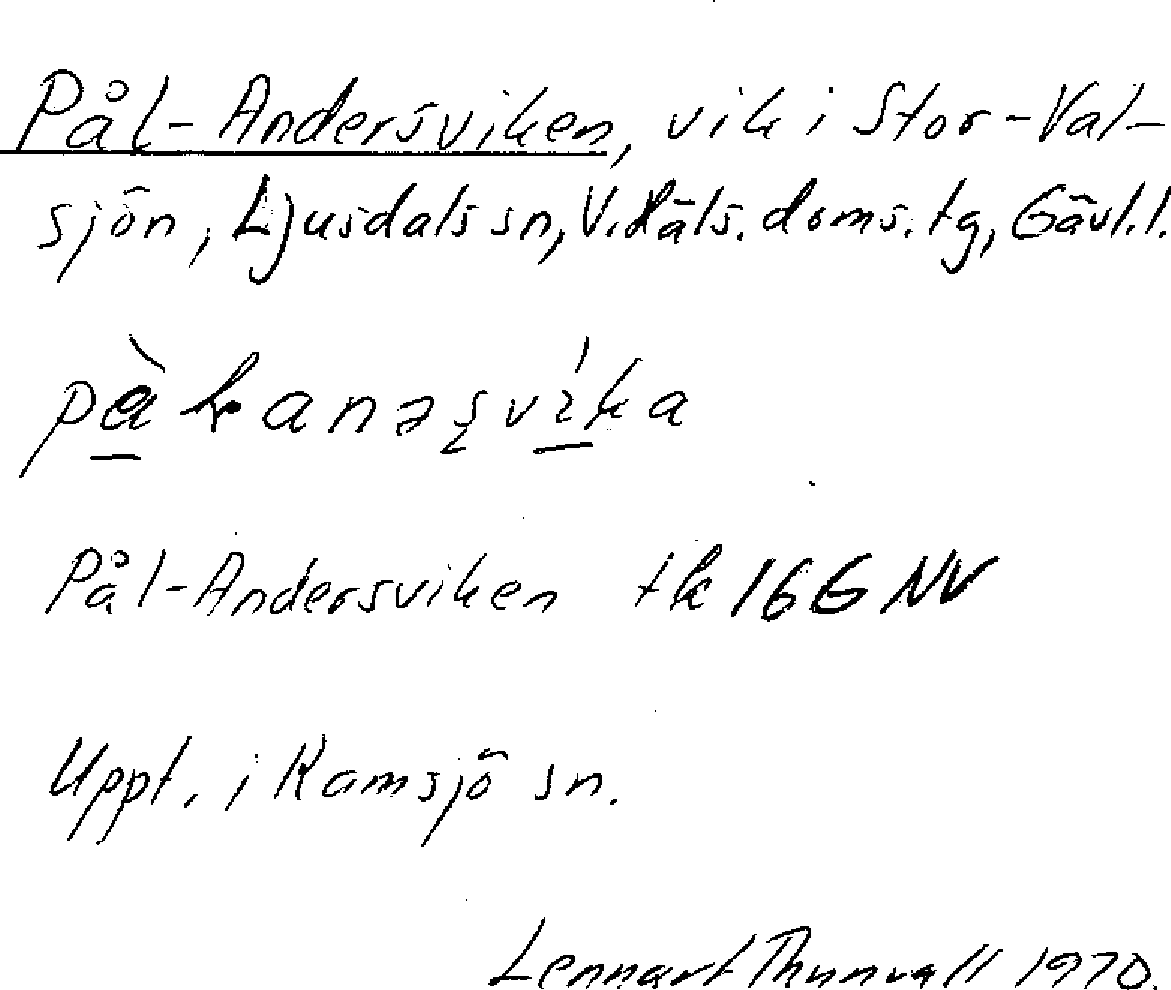 Pål-Andersviken, vik i Stor-Val-
sjön, Ljusdals sn, V. Häls. doms. tg, Gävl. l.
Pål-Andersviken tk 16G NV
Uppt. i Ramsjö sn.
Lennart Thunvall 1970.